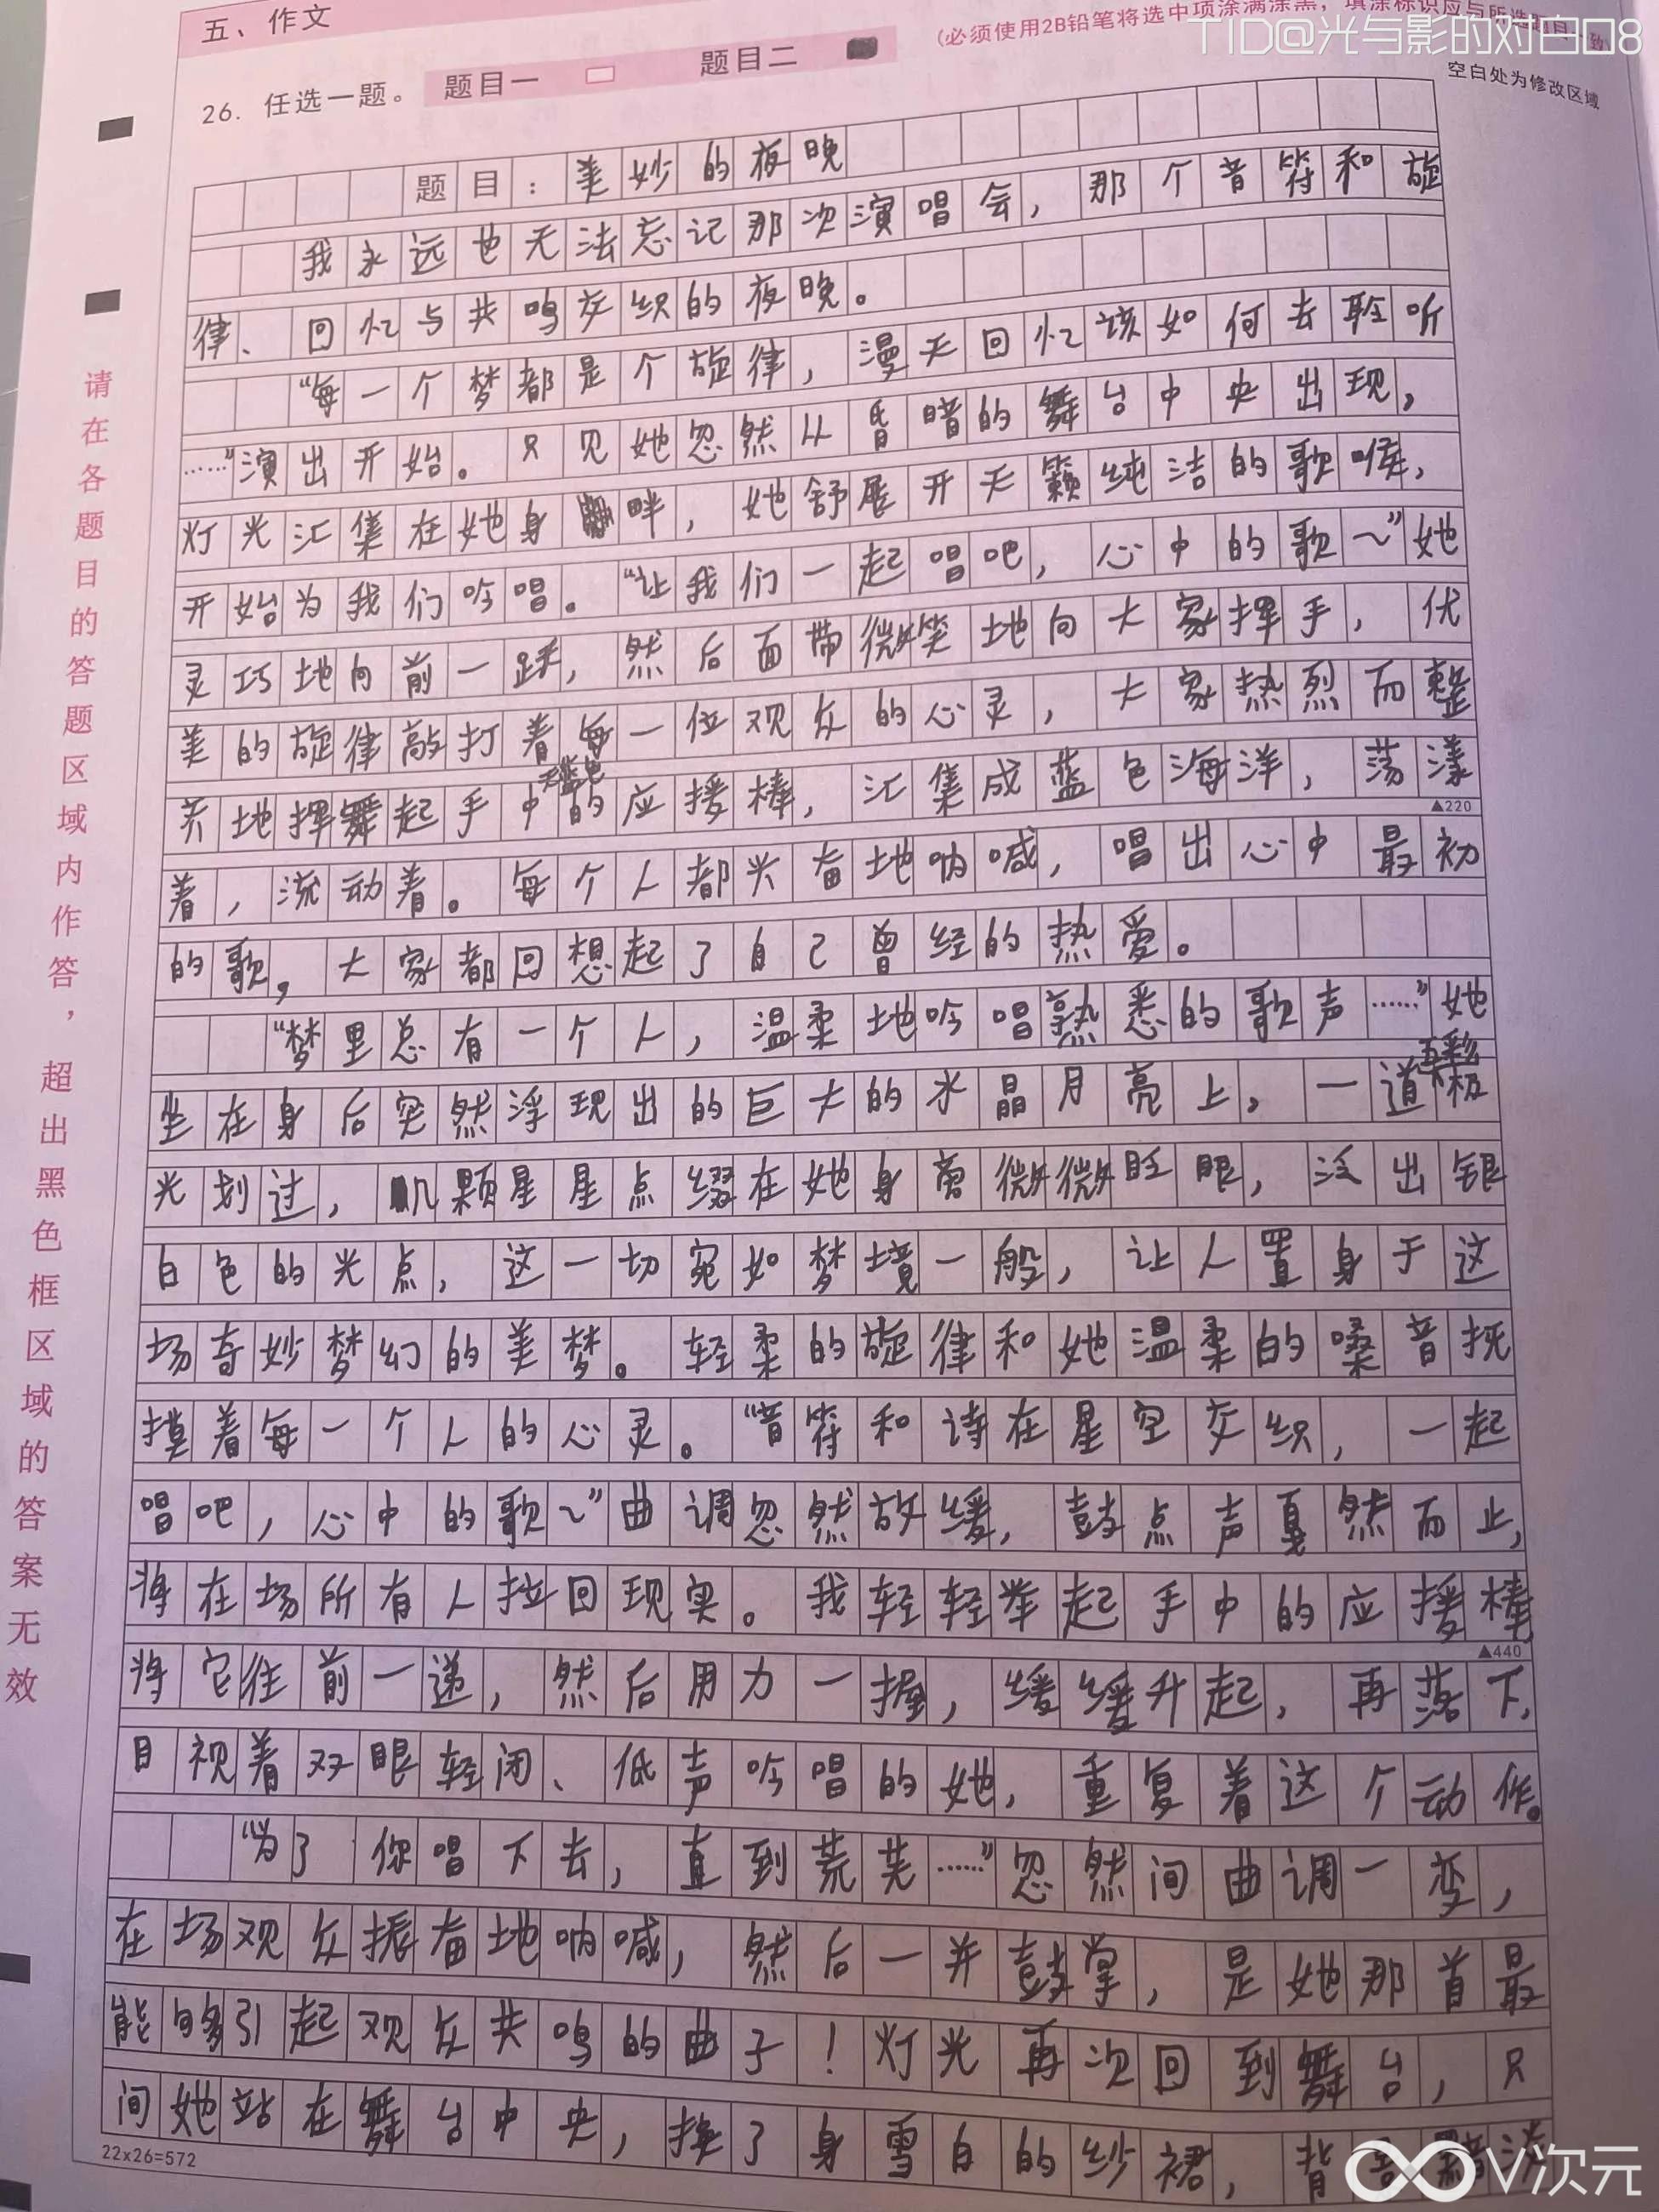 五、作文
(必须使用2B铅笔将选中项涂满涂黑，填涂标识应与所选题目一致)
TID@光与影的对白口8
26. 任选一题。 题目一 题目二
空白处为修改区域
题目：美妙的夜晚
我永远也无法忘记那次演唱会，那个音符和旋
律、回忆与共鸣交织的夜晚。
“每一个梦都是个旋律，漫天回忆该如何去聆听
……”演出开始。只见她忽然从昏暗的舞台中央出现，
灯光汇集在她身畔，她舒展开天籁纯洁的歌喉，
开始为我们吟唱。“让我们一起唱吧，心中的歌～”她
灵巧地向前一跃，然后面带微笑地向大家挥手，优
美的旋律敲打着每一位观众的心灵，大家热烈而整
齐地挥舞起手中天蓝色的应援棒，汇集成蓝色海洋，荡漾
▲220
着，流动着。每个人都兴奋地呐喊，唱出心中最初
的歌，大家都回想起了自己曾经的热爱。
“梦里总有一个人，温柔地吟唱熟悉的歌声……”她
坐在身后突然浮现出的巨大的水晶月亮上，一道五彩极
光划过，几颗星星点缀在她身旁微微眨眼，泛出银
白色的光点，这一切宛如梦境一般，让人置身于这
场奇妙梦幻的美梦。轻柔的旋律和她温柔的嗓音抚
摸着每一个人的心灵。“音符和诗在星空交织，一起
唱吧，心中的歌～”曲调忽然放缓，鼓点声戛然而止，
将在场所有人拉回现实。我轻轻举起手中的应援棒
▲440
将它往前一递，然后用力一握，缓缓升起，再落下，
目视着双眼轻闭、低声吟唱的她，重复着这个动作。
“为了你唱下去，直到荒芜……”忽然间曲调一变，
在场观众振奋地呐喊，然后一并鼓掌，是她那首最
能够引起观众共鸣的曲子！灯光再次回到舞台，只
间她站在舞台中央，换了身雪白的纱裙，背
22x26=572
请在各题目的答题区域内作答，超出黑色框区域的答案无效
V次元